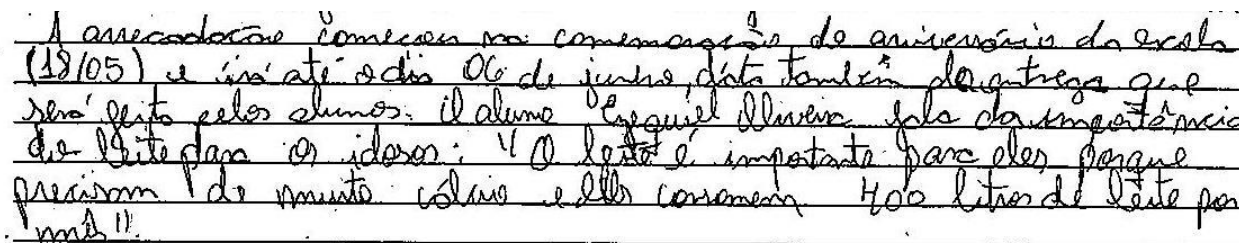 A arrecadação começou na comemoração do aniversário da escola
(18/05) e irá até o dia 06 de junho, data também da entrega que
será feita pelos alunos. O aluno Ezequiel Oliveira fala da importância
do leite para os idosos: "O leite é importante para eles porque
precisam de muito cálcio e eles consomem 400 litros de leite por
mês".